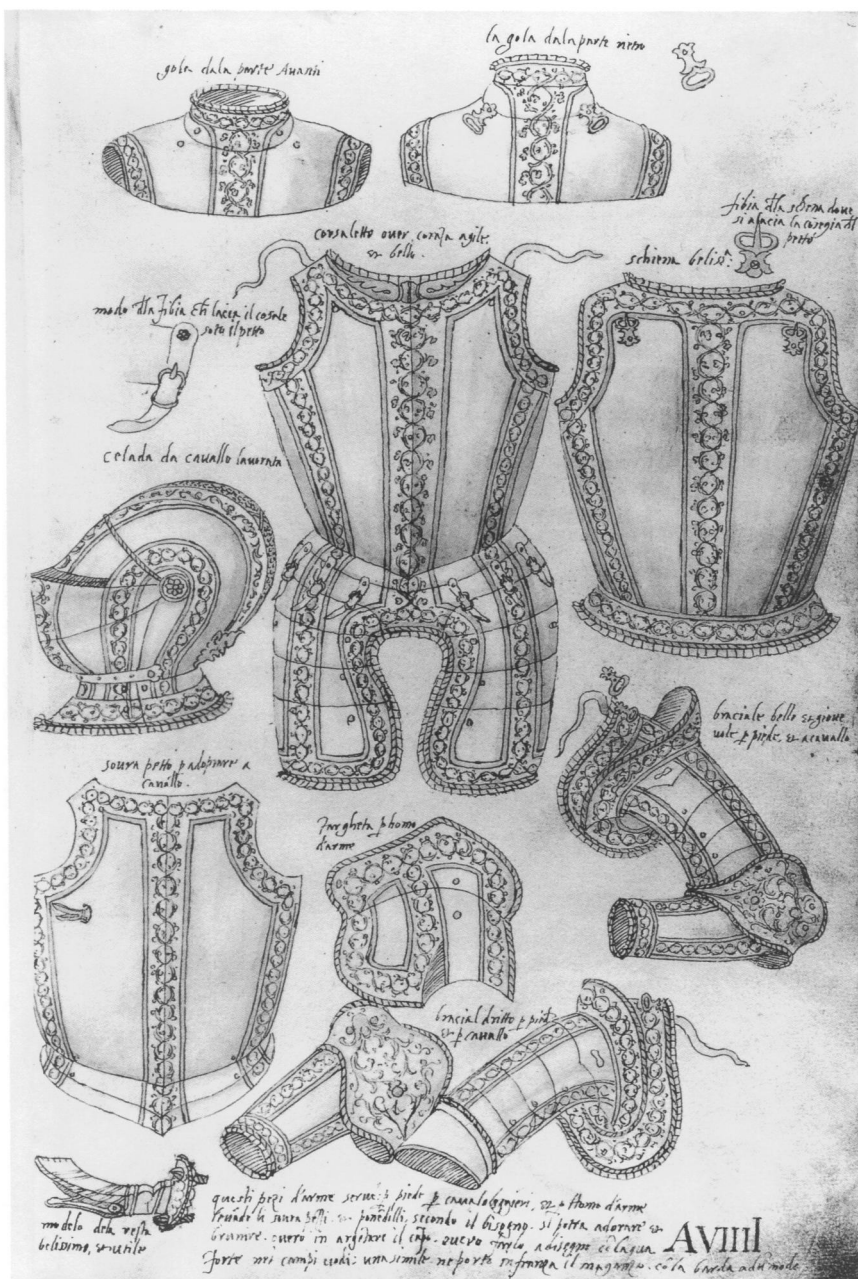 gola dala parte Auanti
la gola dala parte rietro
corsaletto ouer coraza agile,
et bello.
fibia dla schena doue
si alacia la coregia dl
petto
schiena belisa:
modo dla fibia ch lacia il cosale
soto il petto
celada da cauallo lauorata
braciale bello et gioue
uole p piede, et acauallo
soura petto p adopiare a
cauallo.
Targheta p homo
d'arme
bracial dritto p pied
et p cauallo
modelo dela resta
belissimo, et utile
questi pezi d'arme serue: p piede p caualolegieri, et p Homo d'arme
le soura petti et secondo il bisogno. si potra adorare et
brunire. ouero in argitare il capo. ouero a disegni cō laqua
forte nei campi uodi: una simile ne portò in franza il co la barda
AVIIII